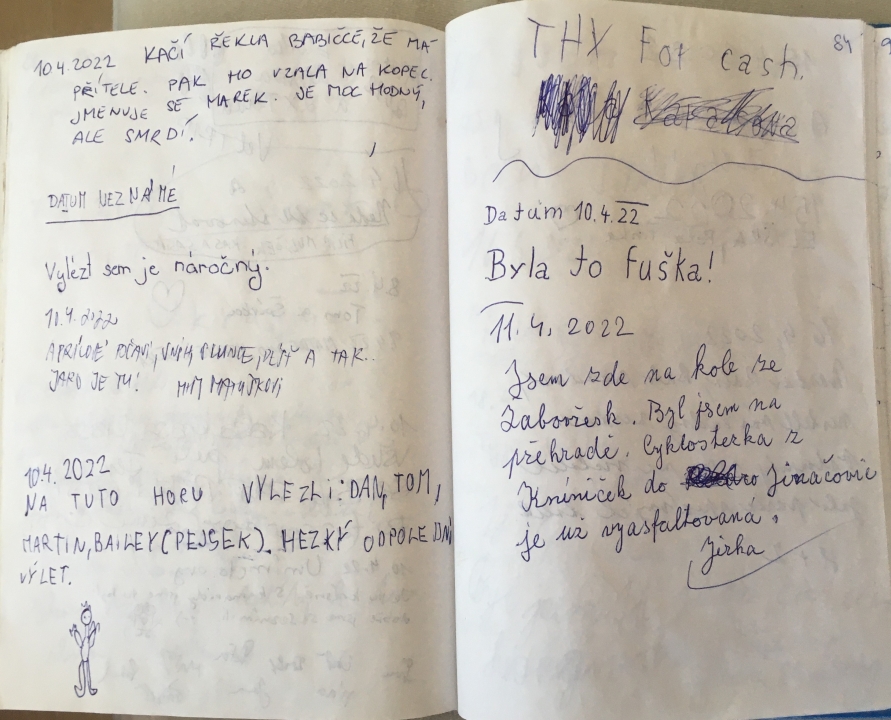 10.4.2022 KAČÍ ŘEKLA BABIČCE, ŽE MÁ
PŘÍTELE. PAK HO VZALA NA KOPEC.
JMENUJE SE MAREK. JE MOC HODNÝ,
ALE SMRDÍ.
DATUM NEZNÁMÉ
Vylézt sem je náročný.
10.4.2022
APRÍLOVÉ POČASÍ, SNÍH, SLUNCE, DÉŠŤ A TAK..
JARO JE TU!
10.4.2022
NA TUTO HORU VYLEZLI: DAN, TOM,
MARTIN, BAILEY (PEJSEK). HEZKÝ ODPOLEDNÍ
VÝLET.
84
THX For cash.
Datum 10.4.22
Byla to fuška!
11.4.2022
Jsem zde na kole ze
Žabovřesk. Byl jsem na
přehradě. Cyklostezka z
Kníniček do Jinačovic
je už vyasfaltovaná.
Jirka